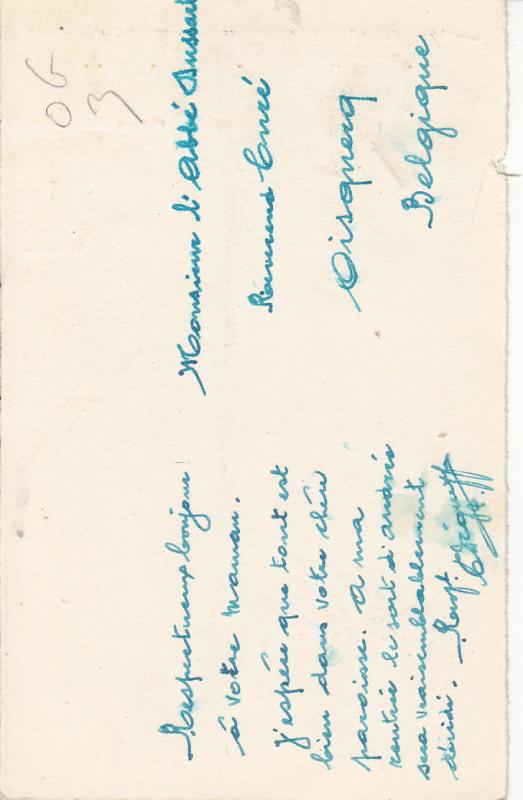 Respectueux bonjour
à votre Maman.
J'espère que tout est
bien dans votre chère
paroisse. A ma
rentrée le sort d'André
sera vraisemblablement
décidé. Resp.
Monsieur l'Abbé
Révérend Curé
Oisquercq
Belgique